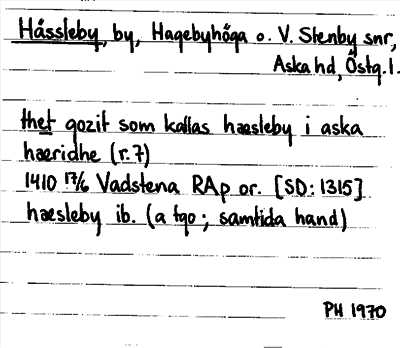 Hässleby, by, Hagebyhöga o. V. Stenby snr,
Aska hd, Östg. l.
thet gozit som kallas hæsleby i aska
hæridhe (r. 7)
1410 17/6 Vadstena RAp or. [SD: 1315]
hæsleby ib. (a tgo; samtida hand)
PH 1970